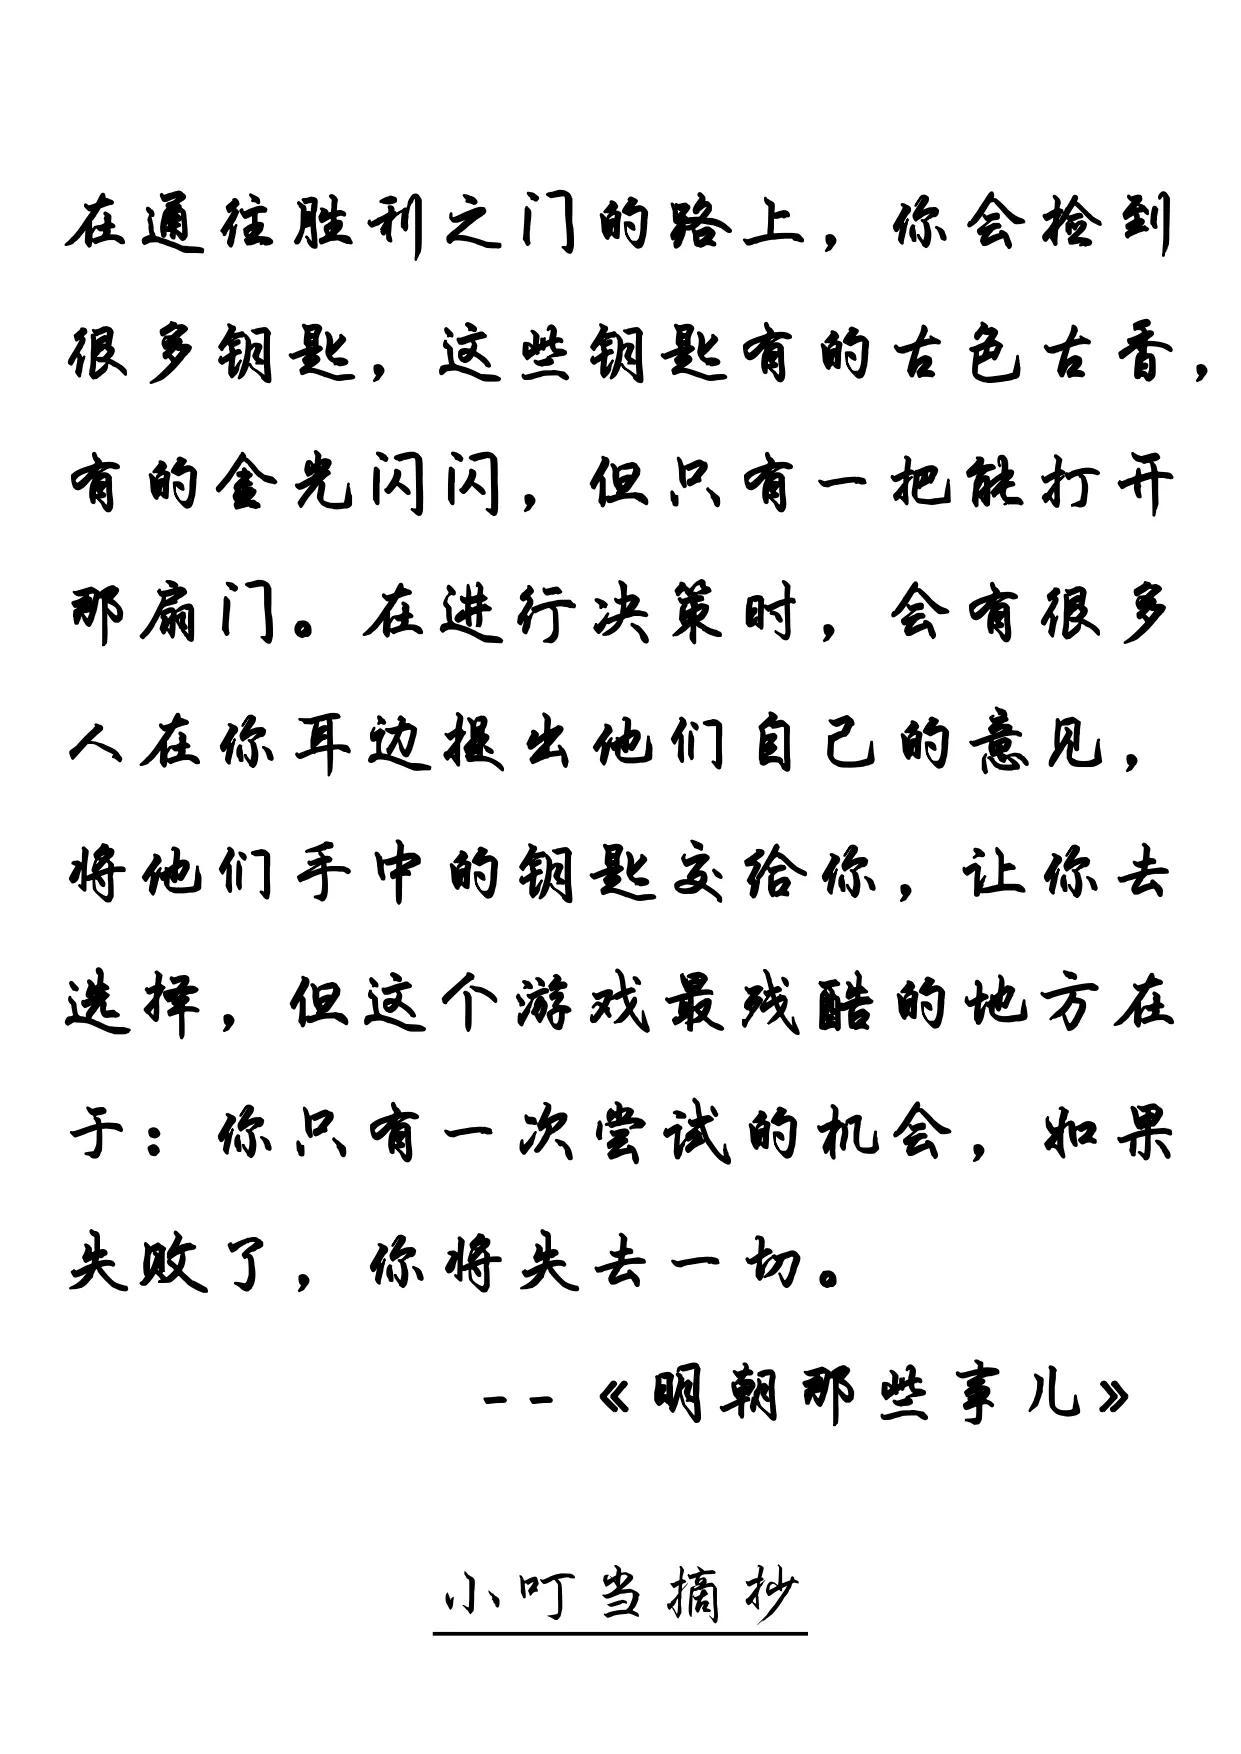 在通往胜利之门的路上，你会捡到
很多钥匙，这些钥匙有的古色古香，
有的金光闪闪，但只有一把能打开
那扇门。在进行决策时，会有很多
人在你耳边提出他们自己的意见，
将他们手中的钥匙交给你，让你去
选择，但这个游戏最残酷的地方在
于：你只有一次尝试的机会，如果
失败了，你将失去一切。
--《明朝那些事儿》
小叮当摘抄